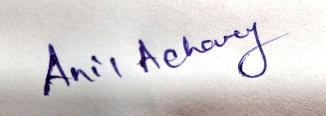 Anil Acharey